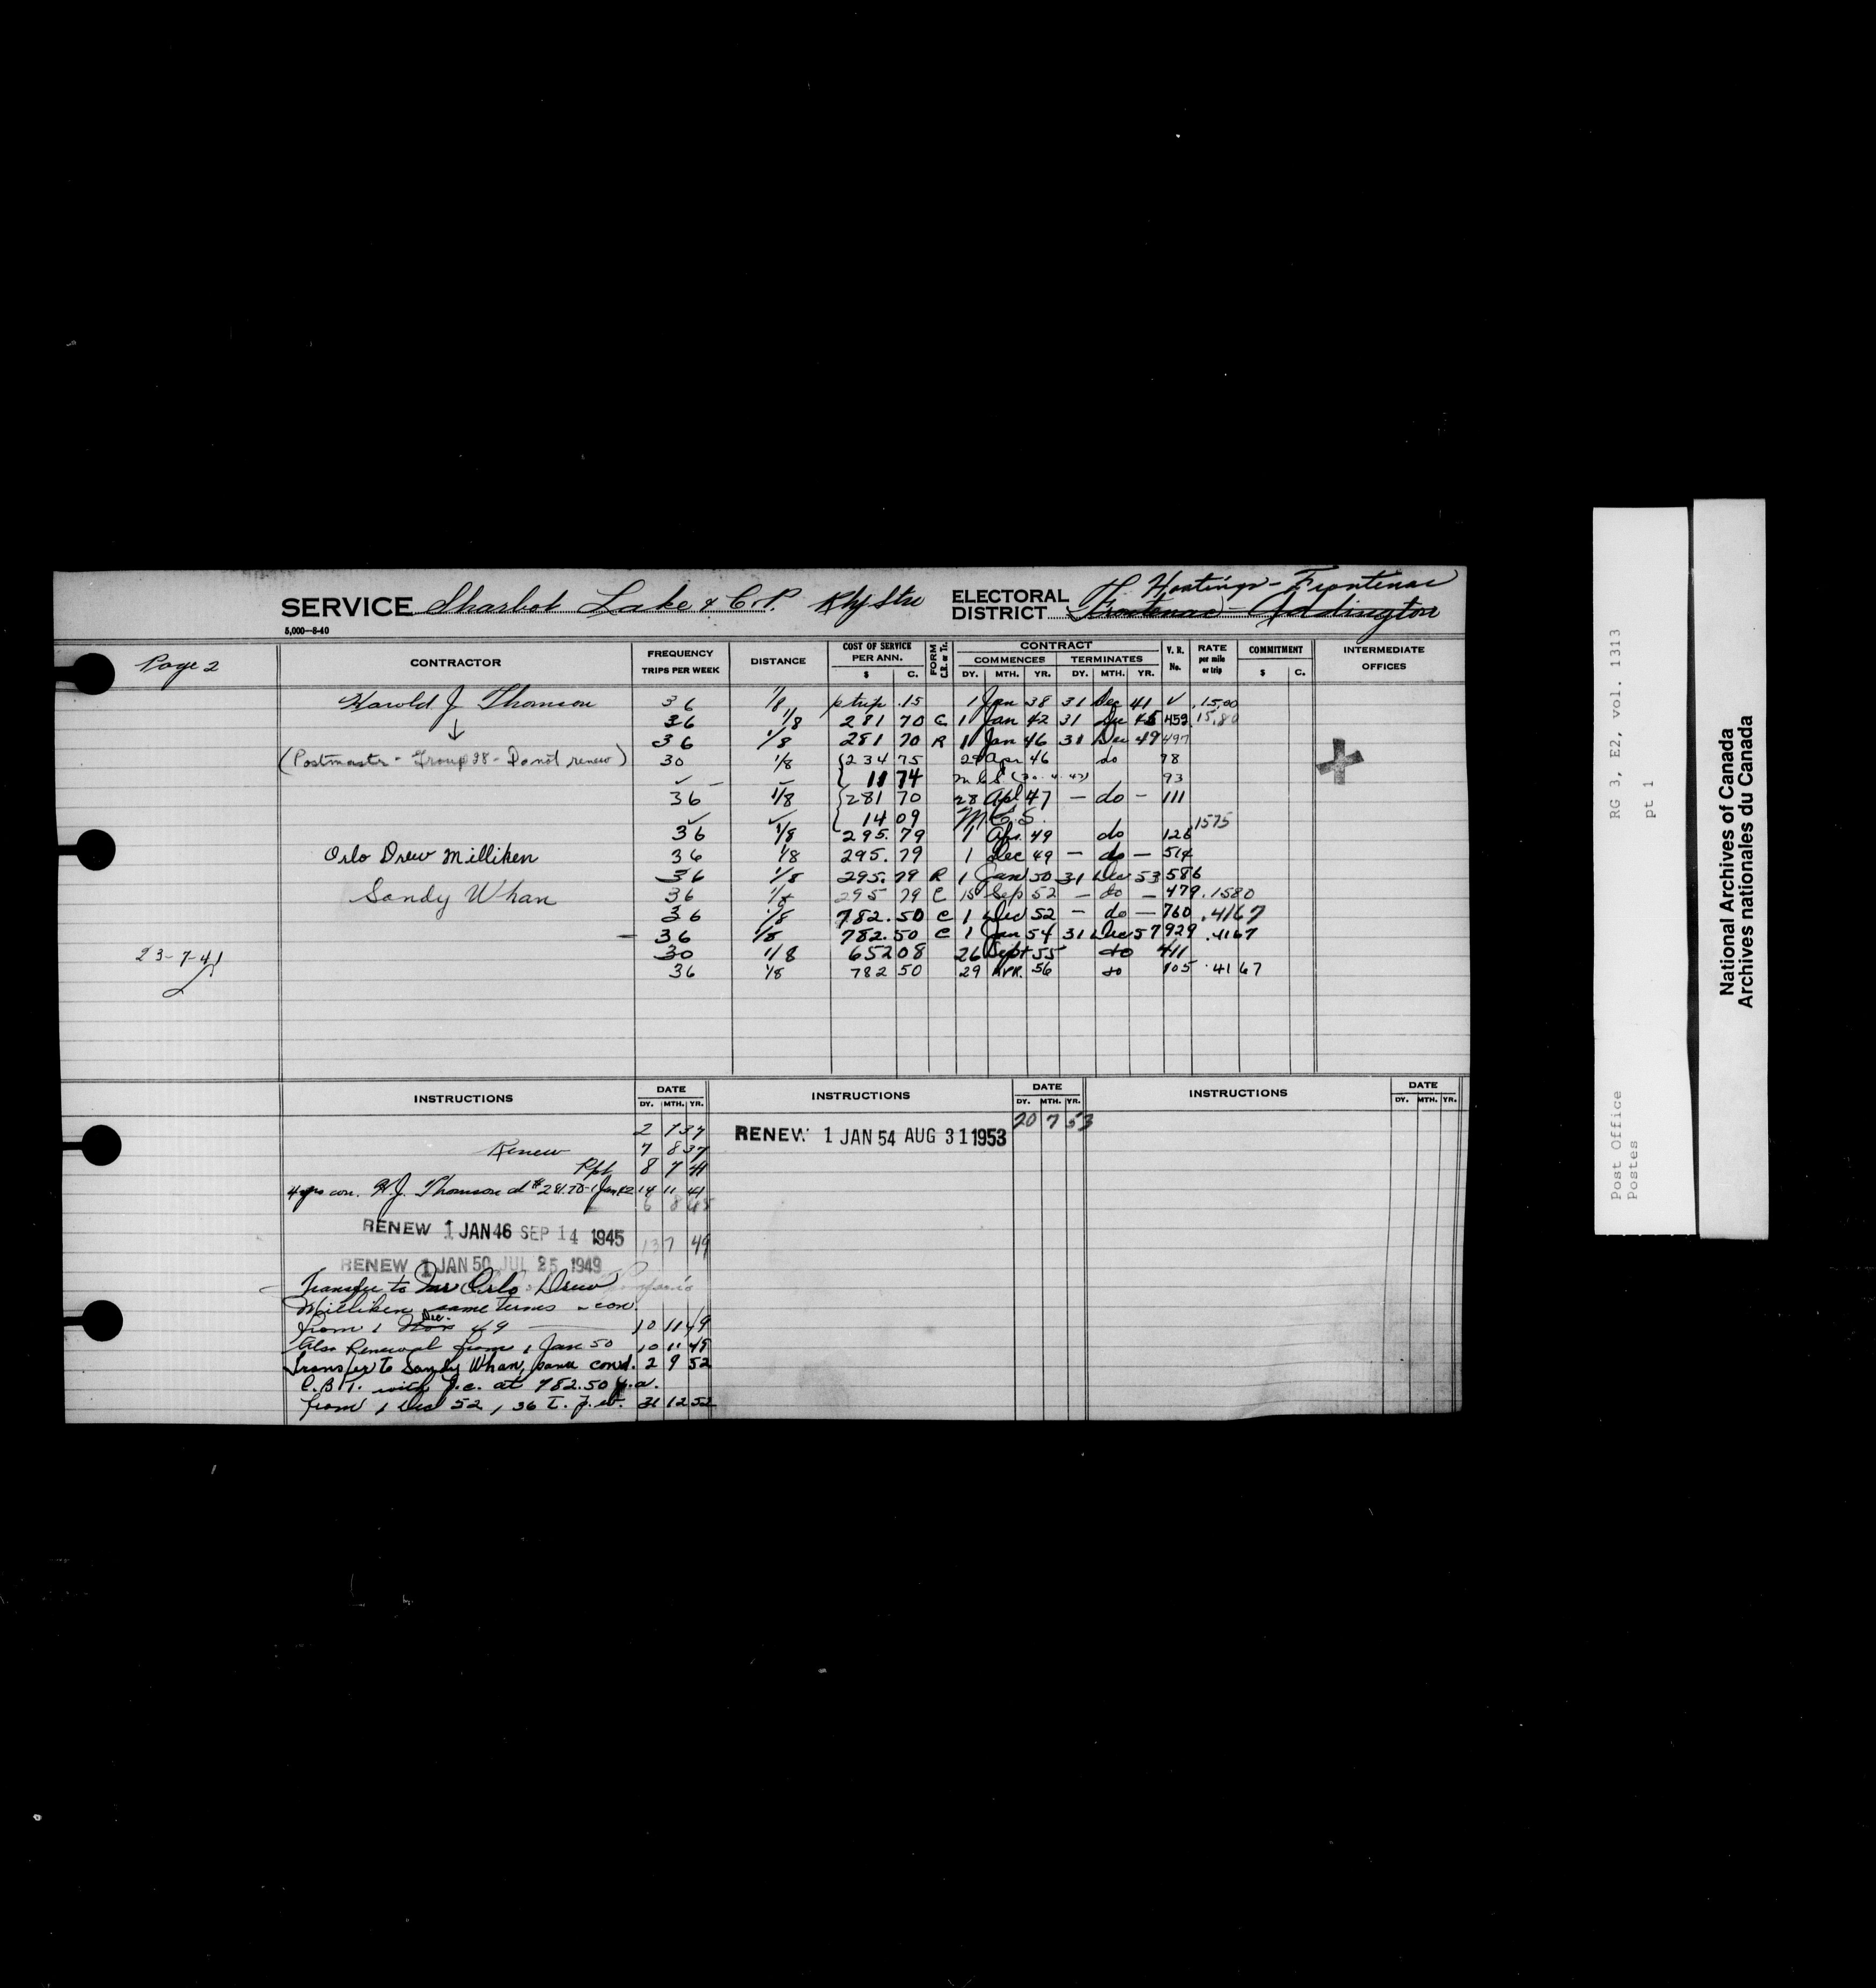 SERVICE Sharbot Lake & C.P. Rly Stn ELECTORAL DISTRICT H. Hastings - Frontenac
Frontenac - Addington
5,000—8-40
Page 2 CONTRACTOR FREQUENCY TRIPS PER WEEK DISTANCE COST OF SERVICE PER ANN. $ C. FORM C.R. or Tr. CONTRACT COMMENCES DY. MTH. YR. TERMINATES DY. MTH. YR. V. R. No. RATE per mile or trip COMMITMENT $ C. INTERMEDIATE OFFICES
Harold J Thomson 36 1/8 p trip .15 1 Jan 38 31 Dec 41 ✓ .1500
↓ 36 1/8 281 70 C 1 Jan 42 31 Dec 45 459 .1580
36 1/8 281 70 R 1 Jan 46 31 Dec 49 497
(Postmaster - Group 98 - Do not renew) 30 1/8 {234 75 29 Apr 46 do 78
✓ — 11 74 M C S (30. 4. 47) 93
36 1/8 {281 70 28 Apl 47 — do — 111
✓ ✓ 14 09 M.C.S.
36 1/8 295.79 1 Apr. 49 do 126 .1575
Orlo Drew Milliken 36 1/8 295.79 1 Dec 49 — do — 514
36 1/8 295.79 R 1 Jan 50 31 Dec 53 586
Sandy Whan 36 1/8 295 79 C 15 Sep 52 — do — 479 .1580
36 1/8 782.50 C 1 Dec 52 — do — 760 .4167
36 1/8 782.50 C 1 Jan 54 31 Dec 57 929 .4167
23-7-41 30 1/8 652 08 26 Sept 55 do 411
36 1/8 782 50 29 APR. 56 do 105 .4167
INSTRUCTIONS DATE DY. MTH. YR. INSTRUCTIONS DATE DY. MTH. YR. INSTRUCTIONS DATE DY. MTH. YR.
2 7 37
RENEW 1 JAN 54 AUG 31 1953 20 7 53
Renew 7 8 37
Rpt 8 7 41
4 yrs con. H.J. Thomson at $281.70 - 1 Jan 42 14 11 41
6 8 45
RENEW 1 JAN 46 SEP 14 1945
13 7 49
RENEW 1 JAN 50 JUL 25 1949
Transfer to Orlo Drew
Milliken same terms & con.
from 1 Nov Dec. 49 10 11 49
Also Renewal from 1 Jan 50 10 11 49
Transfer to Sandy Whan, same cond. 2 9 52
C.B.T. with J.C. at 782.50 p.a.
from 1 Dec 52, 36 t.p.w. 31 12 52
Post Office RG 3, E2, vol. 1313
Postes pt 1
National Archives of Canada
Archives nationales du Canada